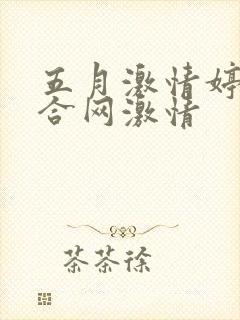 五月激情婷
合网激情
茶茶徐